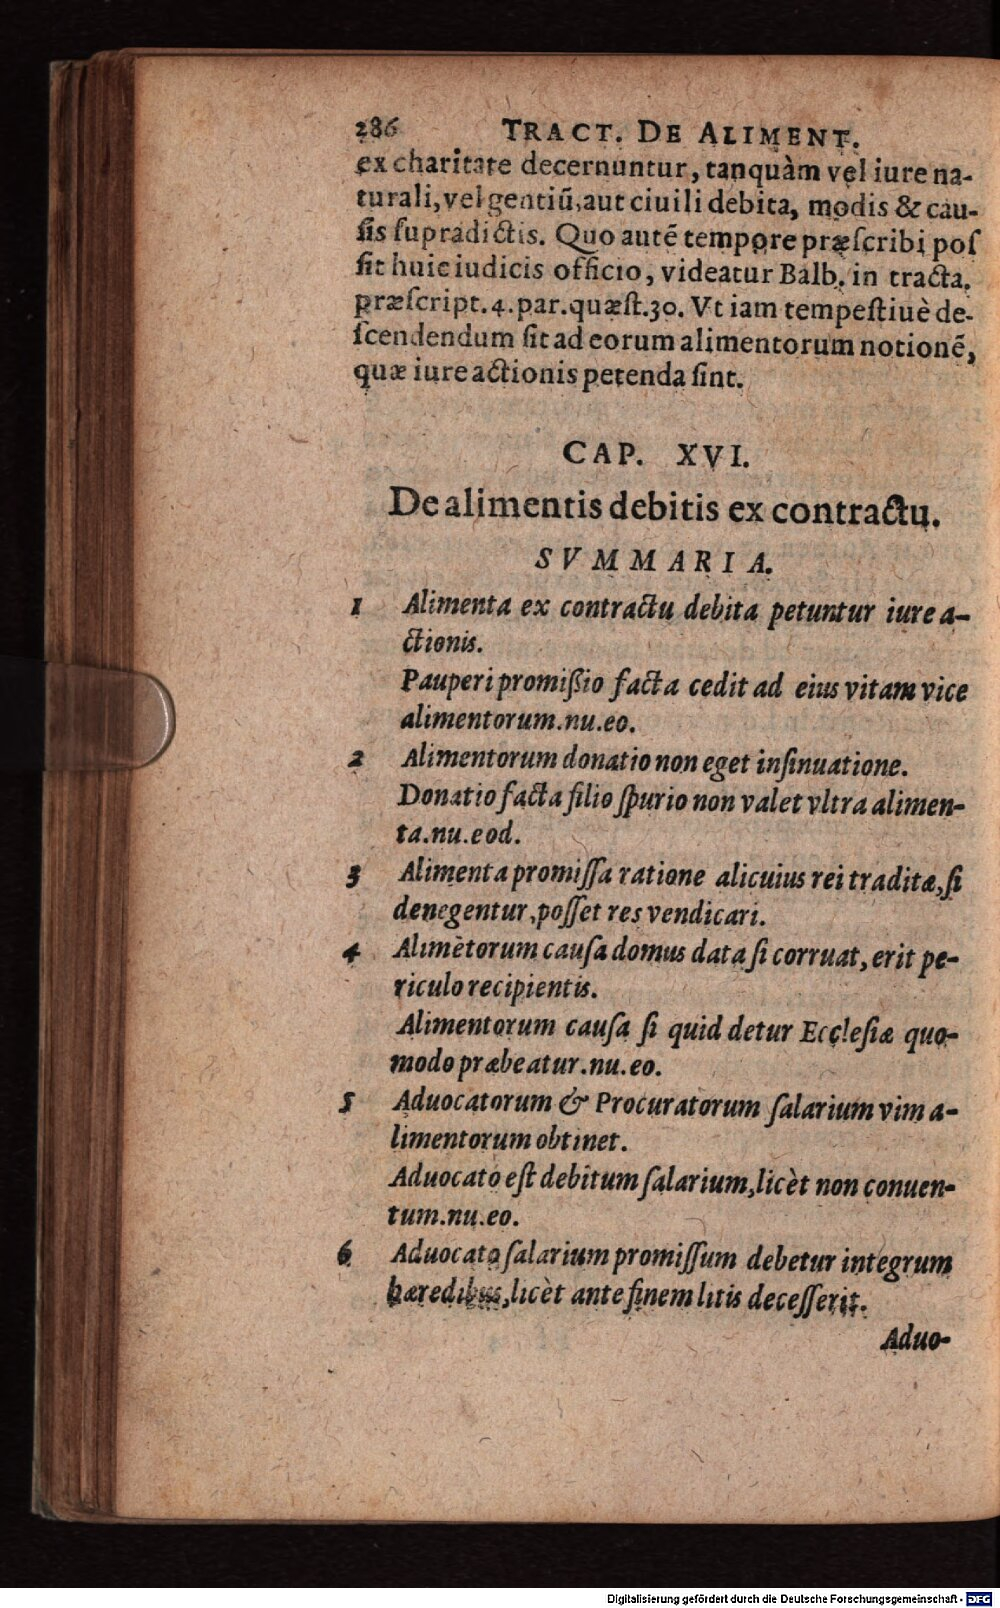 286 TRACT. DE ALIMENT.
ex charitate decernuntur, tanquàm vel iure na-
turali, vel gentiũ, aut ciuili debita, modis & cau-
ſis ſupradictis. Quo autẽ tempore præſcribi poſ
ſit huic iudicis officio, videatur Balb. in tracta.
præſcript. 4. par. quæſt. 30. Vt iam tempeſtiuè de-
ſcendendum ſit ad eorum alimentorum notionẽ,
quæ iure actionis petenda ſint.
CAP. XVI.
De alimentis debitis ex contractu.
SVMMARIA.
1 Alimenta ex contractu debita petuntur iure a-
ctionis.
Pauperi promiſſio facta cedit ad eius vitam vice
alimentorum. nu. eo.
2 Alimentorum donatio non eget inſinuatione.
Donatio facta filio ſpurio non valet vltra alimen-
ta. nu. eod.
3 Alimenta promiſſa ratione alicuius rei traditæ, ſi
denegentur, poſſet res vendicari.
4 Alimètorum cauſa domus data ſi corruat, erit pe-
riculo recipientis.
Alimentorum cauſa ſi quid detur Eccleſiæ quo-
modo præbeatur. nu. eo.
5 Aduocatorum & Procuratorum ſalarium vim a-
limentorum obtinet.
Aduocato eſt debitum ſalarium, licèt non conuen-
tum. nu. eo.
6 Aduocato ſalarium promiſſum debetur integrum
hæredibus, licèt ante finem litis deceſſerit.
Aduo-
Digitalisierung gefördert durch die Deutsche Forschungsgemeinschaft - DFG